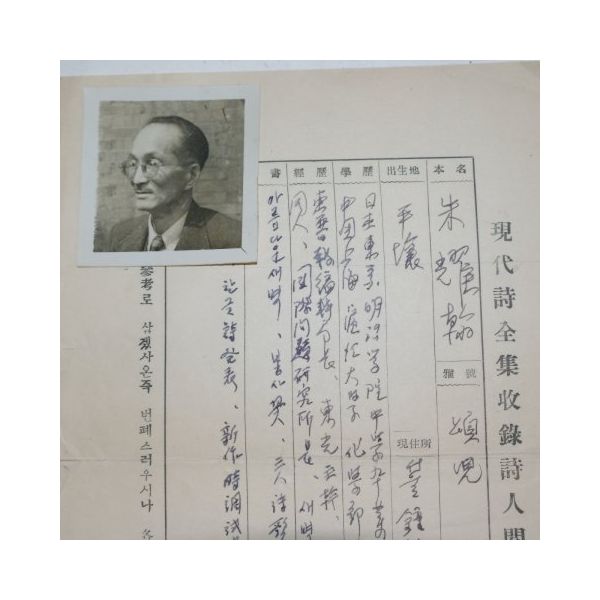 現代詩全集收錄詩人
本名 朱耀翰 雅號 頌兒
出生地 平壤 現住所
學歷 日本東京明治学院中学部卒業
中国上海滬江大学 化学部
經歷 東亜日報編輯局長、東光主幹、
同人、国際问題研究所長、새벽
書 아름다운새벽、봉사꽃、三人詩歌
詩發表、新作時調
參考로 삼겠사온즉 번폐스러우시나 各